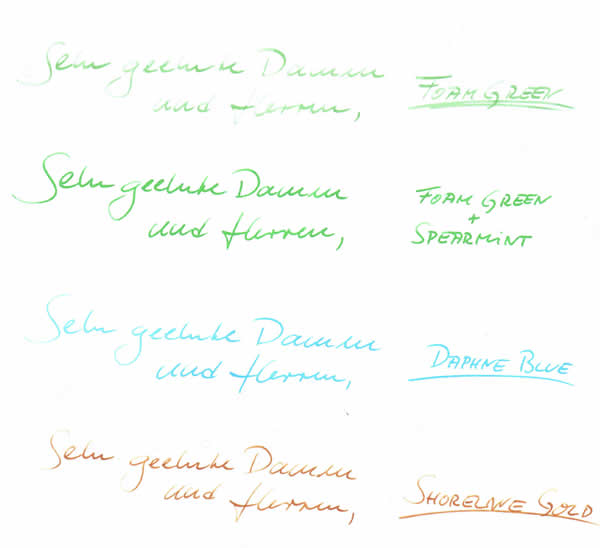 Sehr geehrte Damen
und Herren,
FOAM GREEN
Sehr geehrte Damen
und Herren,
FOAM GREEN
+
SPEARMINT
Sehr geehrte Damen
und Herren,
DAPHNE BLUE
Sehr geehrte Damen
und Herren,
SHORELINE GOLD